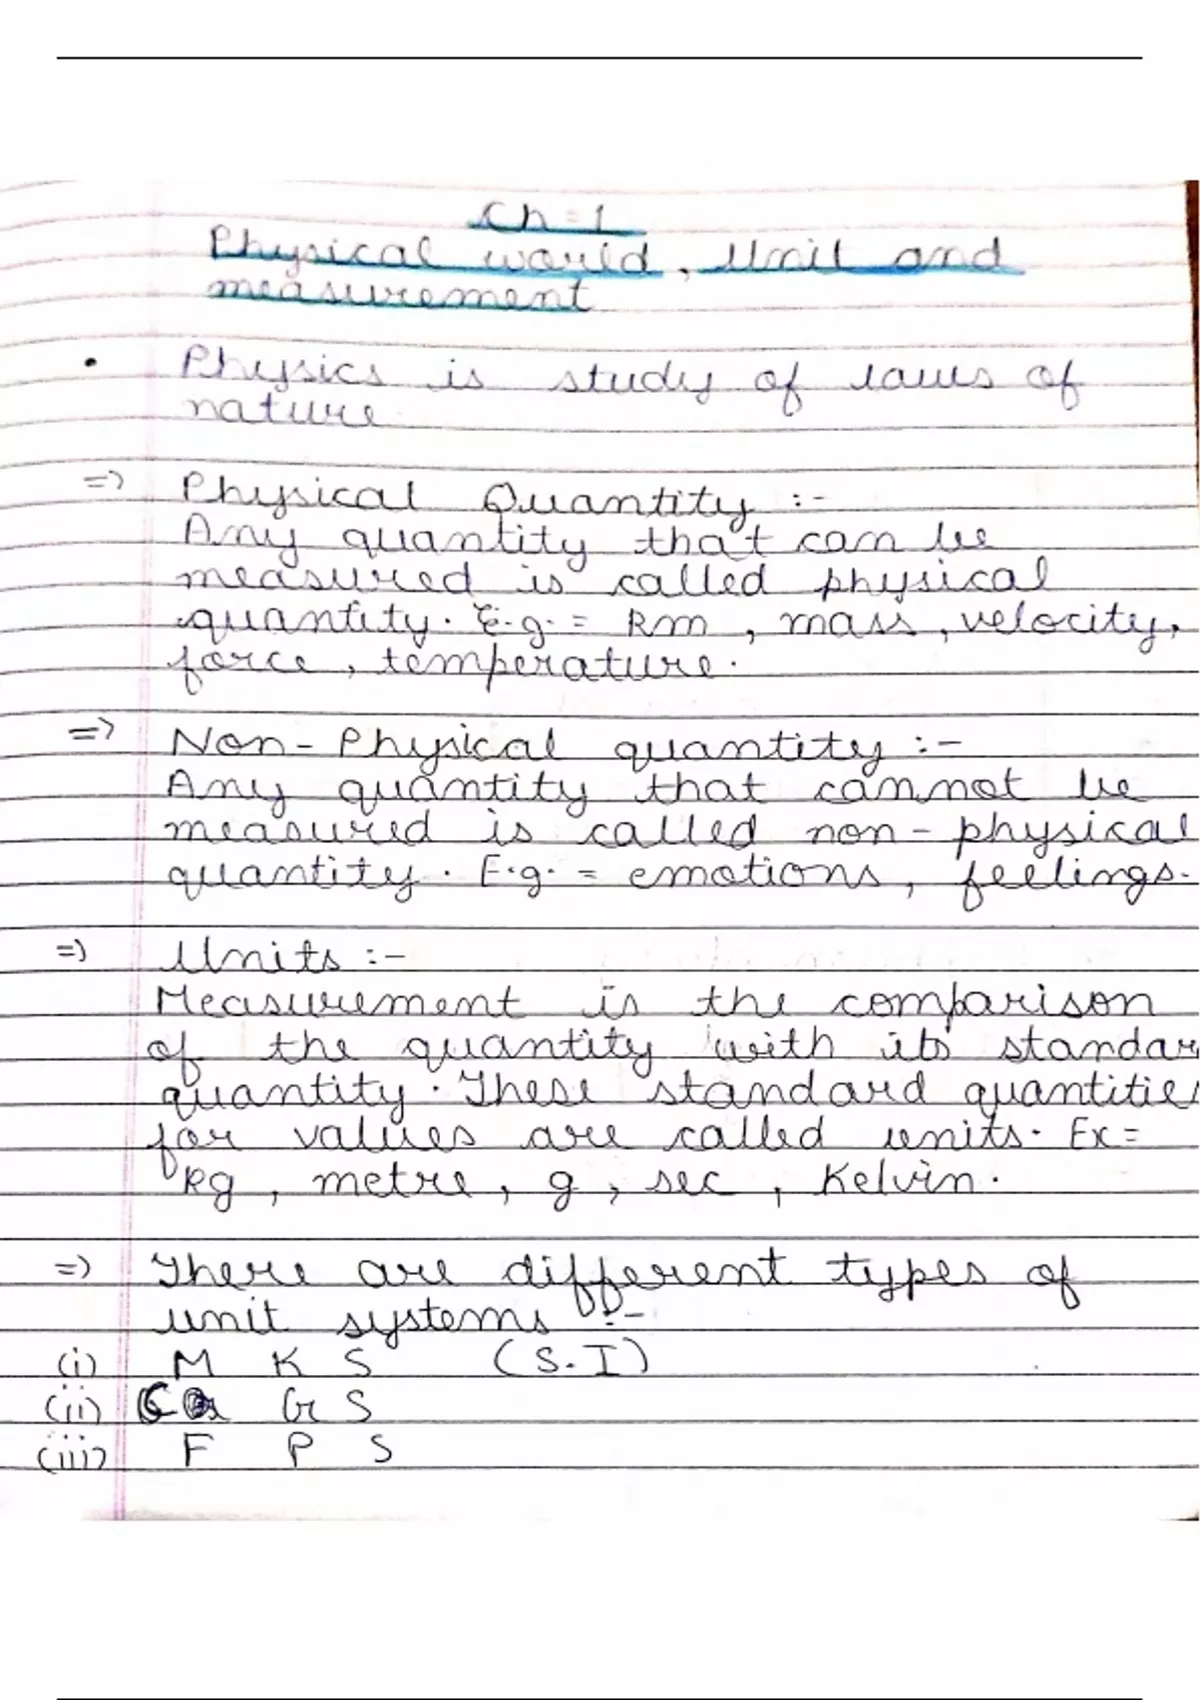 Ch = 1
Physical world, Unit and
measurement
• Physics is study of laws of
nature
=> Physical Quantity :-
Any quantity that can be
measured is called physical
quantity. E.g. = Km, mass, velocity,
force, temperature.
=> Non-Physical quantity :-
Any quantity that cannot be
measured is called non-physical
quantity. E.g. = emotions, feelings.
=> Units :-
Measurement is the comparison
of the quantity with its standar
quantity. These standard quantities
for values are called units. Ex =
kg, metre, g, sec, Kelvin.
=> There are different types of
unit systems :-
(i) M K S (S.I)
(ii) C G S
(iii) F P S